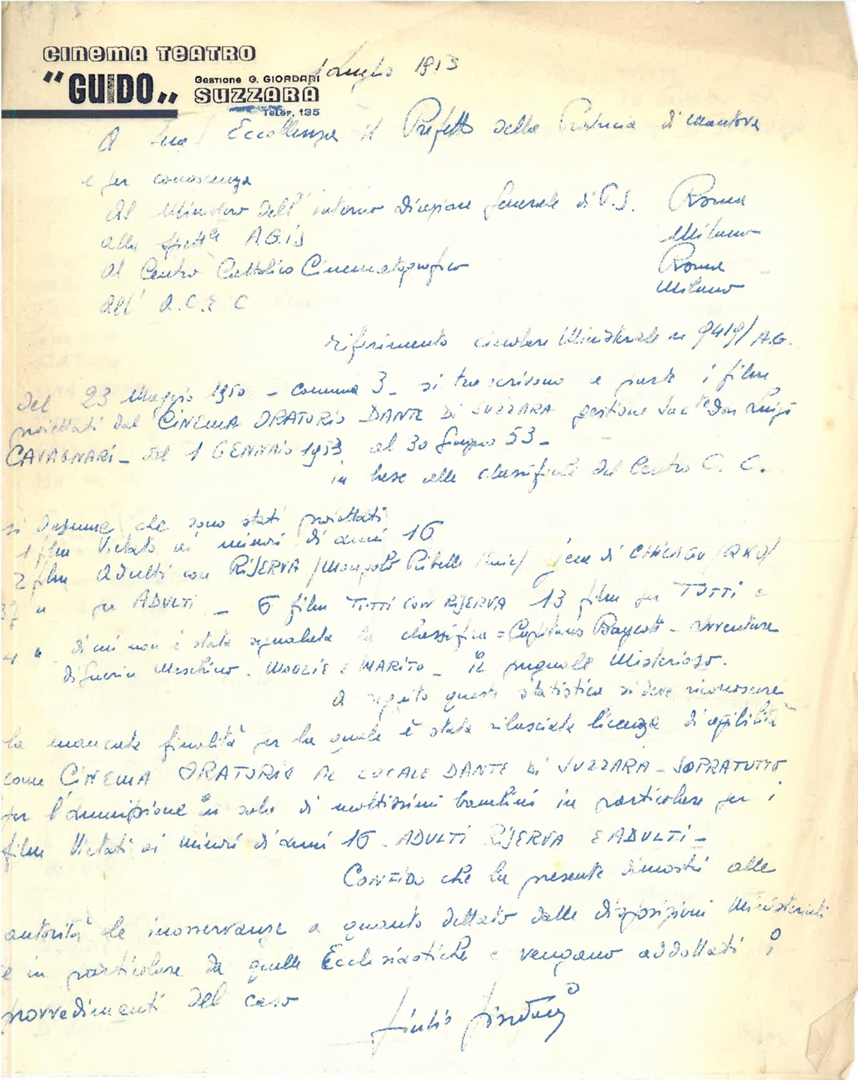 CINEMA TEATRO
"GUIDO" Gestione G. GIORDANI
SUZZARA
TELEF. 135
1 Luglio 1953
A Sua Eccellenza il Prefetto della Provincia di Mantova
e per conoscenza
Al Ministero dell'interno direzione Generale di P.S. Roma
alla AGIS Milano
Al Centro Cattolico Cinematografico Roma
all' A.C.E.C Milano
riferimento circolare Ministeriale n 9419/A.G.
Del 23 Maggio 1950 - comma 3 - si trascrivono a parte i film
proiettati dal CINEMA ORATORIO DANTE DI SUZZARA gestione Sac Don Luigi
CAVAGNARI - dal 1 GENNAIO 1953 al 30 Giugno 53 -
in base alle classifiche del Centro C. C.
si desume che sono stati proiettati
1 film Vietato ai minori di anni 16
2 film adulti con RISERVA / Ribelle / Jena di CHICAGO / RKO/
37 " per ADULTI - 6 film TUTTI CON RISERVA 13 film per TUTTI e
4 " di cui non è stata segnalata la classifica = Capitano Baycott - avventure
di Guerin Meschino. MOGLIE e MARITO - il pugnale Misterioso.
A seguito questa statistica si deve riconoscere
la mancata finalità per la quale è stata rilasciata licenza di agibilità
come CINEMA ORATORIO AL LOCALE DANTE DI SUZZARA - SOPRATUTTO
per l'ammissione in sala di moltissimi bambini in particolare per i
film Vietati ai minori di anni 16 - ADULTI RISERVA E ADULTI -
CONFIDO che la presente dimostri alle
autorità le inosservanze a quanto dettato dalle disposizioni Ministeriali
e in particolare da quelle Ecclesiastiche e vengano addottati i
provvedimenti del caso